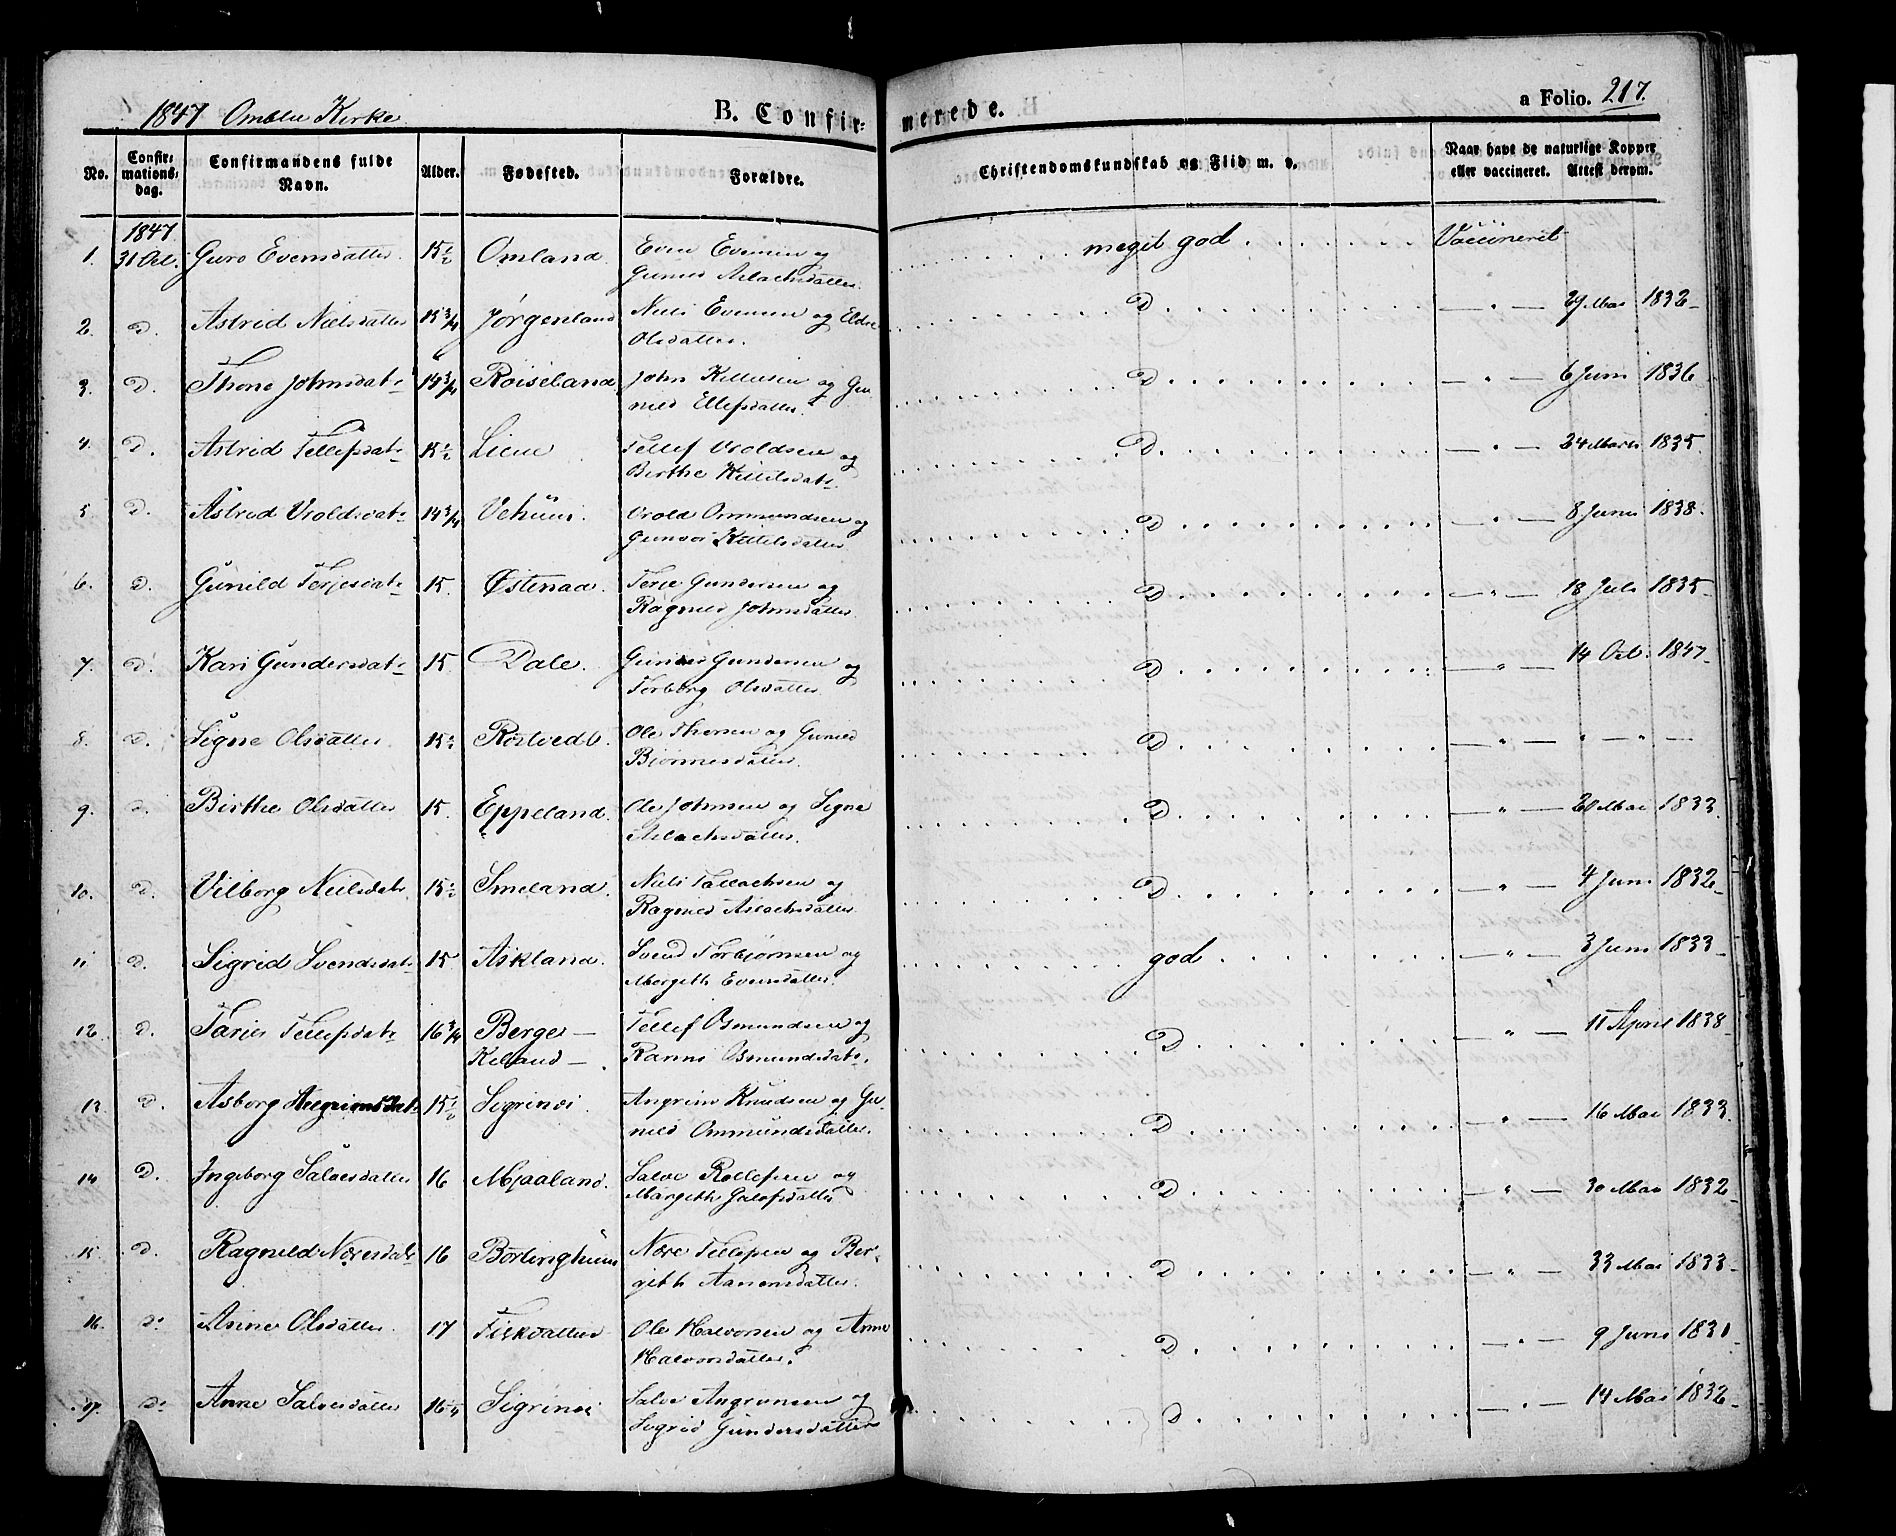 1847 Omblie Kirke
B. Confirmerede.
a Folio. 217.
No. Confirmationsdag. Confirmandens fulde Navn. Alder. Fødested. Forældre. Christendomskundskab og Flid m. v. Naar havt de naturlige Kopper eller vaccineret. Attest derom.
1. 1847 31 Oct. Guro Evensdatter 15 1/2 Omland. Even Evensen og
Guned Aslachsdatter. meget god Vaccineret
2. D. Astrid Nielsdatter 15 3/4 Jørgenland Niels Evensen og
Olsdatter. D — " — 29 Mai 1832
3. D. Thone Johnsdatr 14 3/4 Röiseland John Killusen og Gu
nild Ellefsdatter. D — " — 6 Juni 1836
4. D. Astrid Tellefsdatr 15 1/2 Liene Tellef Vroldsen og
Birthe Kittilsdatr D — " — 24 Marts 1835.
5 D. Astrid Vroldsdatr 14 3/4 Vehuus. Vrold Ommundsen og
Gunvor Kittilsdatter D — " — 8 Juni 1838.
6. D. Gunild Terjesdatr 15. Østenaa. Terje Gundersen og
Ragnild Johnsdatter D — " — 18 Juli 1835
7. D. Kari Gundersdatr 15. Dale. Gunder Gundersen og
Torborg Olsdatter. D — " — 14 Oct. 1847
8. D. Signe Olsdatter. 15 1/2 Rostvedt. Ole Thorsen og Gunild
Biörnnesdatter. D — " — " — " —
9. D. Birthe Olsdatter 15. Eppeland. Ole Johnsen og Signe
Aslachsdatter. D " — 20 Mai 1833.
10. D. Vilborg Neilsdatr. 15 1/2 Smeland. Niels Tallachsen og
Ragnild Aslachsdatter. D — " — 4 Juni 1832
11 D. Sigrid Svendsdatr 15 Askland. Svend Torbjörnsen og
Margith Evensdatter. god — " — 3 Juni 1833
12. D. Tarjer Tellefsdatr 16 3/4 Berge—
Kiland—. Tellef Osmundsen og
Osmundsdatr. D " — 11 April 1838
13. D. Asborg 15 1/2 Sigrinæi. Angrim Knudsen og Gu
nild Ommundsdatter. D — " — 16 Mai 1833.
14 D. Ingeborg Salvesdatter 16 Mjaaland. Salve Rollefsen og
Margith D — " — 30 Mai 1832
15. D. Ragnild Næresdatr 16 Börlinghuus Nære Tellefsen og Ber
gith Aanensdatter. D — " — 33 Mai 1833
16. D. Anne Olsdatter. 17 Fiskdallen Ole Halvorsen og Anne
Halvorsdatter. D — " — 9 Juni 1831.
17. D. Anne Salvesdatter 16 1/4 Sigrinæi Salve Angrimsen og
Sigrid Gundersdatter D — " — 14 Mai 1832